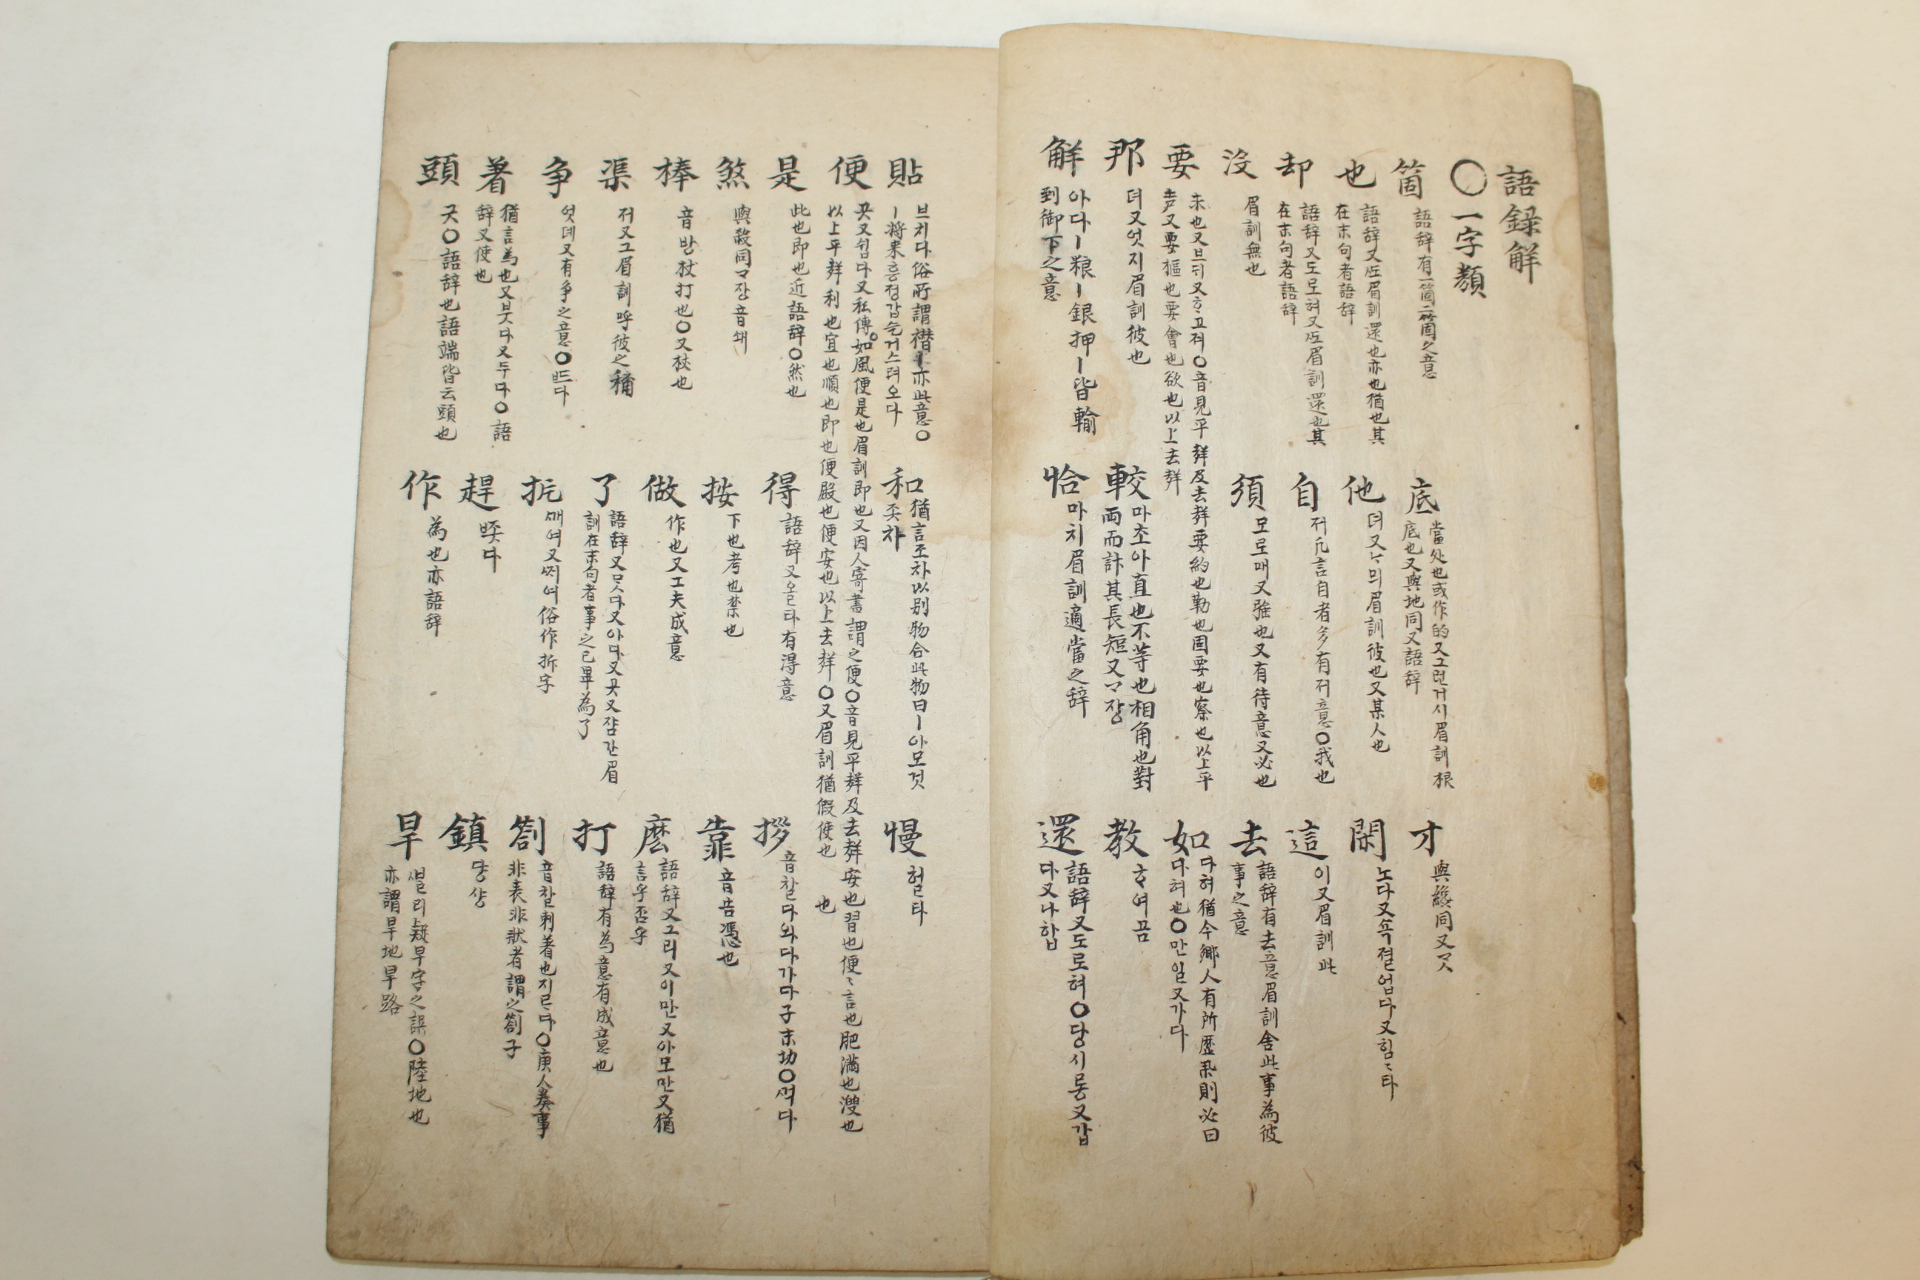 語錄解
○一字類
箇 語辞有一箇二箇之意
底 當处也或作的又그런거시眉訓根底也又與地同又語辞
才 與纔同又ᄀᆞᆺ
也 語辞又眉訓還也亦也猶也其在末句者語辞
他 뎌又眉訓彼也又某人也
閑 노다又쇽졀업다又힘힘타
却 語辞又도로혀又眉訓還也其在末句者語辞
自 저凡言自者多有저意○我也
這 이又眉訓此
沒 眉訓無也
須 모로매又强也又有待意又必也
去 語辞有去意眉訓舍此事為彼事之意
要 求也又ᄒᆞ고져○音見平聲及去聲要約也勒也固要也察也以上平声又要樞也要會也欲也以上去聲
如 다혀猶今鄉人有所歷舉則必曰다혀也○만일又가다
那 뎌又엇지眉訓彼也
較 마초아直也不等也相角也對兩而計其長短又ᄀᆞ장
教 ᄒᆞ여곰
解 아다ㅣ粮ㅣ銀押ㅣ皆輸到御下之意
恰 마치眉訓適當之辞
還 語辞又도로혀○당시롱又갑다又나합
貼 브치다俗所謂褙貼亦此意○ㅣ將来흥졍갑슨거스려오다
和 猶言조차以别物合此物曰ㅣ아모것조차
慢 헐타
便 곳又쉽다又私傳如風便是也眉訓即也又因人寄書謂之便○音見平聲及去聲安也習也便便言也肥滿也溲也以上平聲利也宜也順也即也便殿也便安也以上去聲○又眉訓猶假使也
是 此也即也近語辞○然也
得 語辞又올타有得意
拶 音찰다와다가다子末切○ᄲᅥ다
煞 與殺同ᄀᆞ장音쇄
按 下也考也禁也
靠 音告憑也
棒 音방杖打也○又杖也
做 作也又工夫成意
麽 語辞又그리又이만又아모만又猶言乎否乎
渠 저又그眉訓呼彼之稱
了 語辞又ᄆᆞᆺ다又아다又곳又쟘간眉訓在末句者事之已畢為了
打 語辞有為意有成意也
争 엇뎨又有争之意○ᄠᅳ다
扸 ᄧᅢ여又ᄯᅥ여俗作拆字
劄 音찰刺著也지르다○庚人奏事非表非狀者謂之劄子
著 猶言為也又붓다又두다○語辞又使也
趕 ᄧᅩᆺ다
鎮 댱샹
頭 곳○語辞也語端皆云頭也
作 為也亦語辞
旱 ᄲᆞᆯ리疑早字之誤○陸地也亦謂旱地旱路